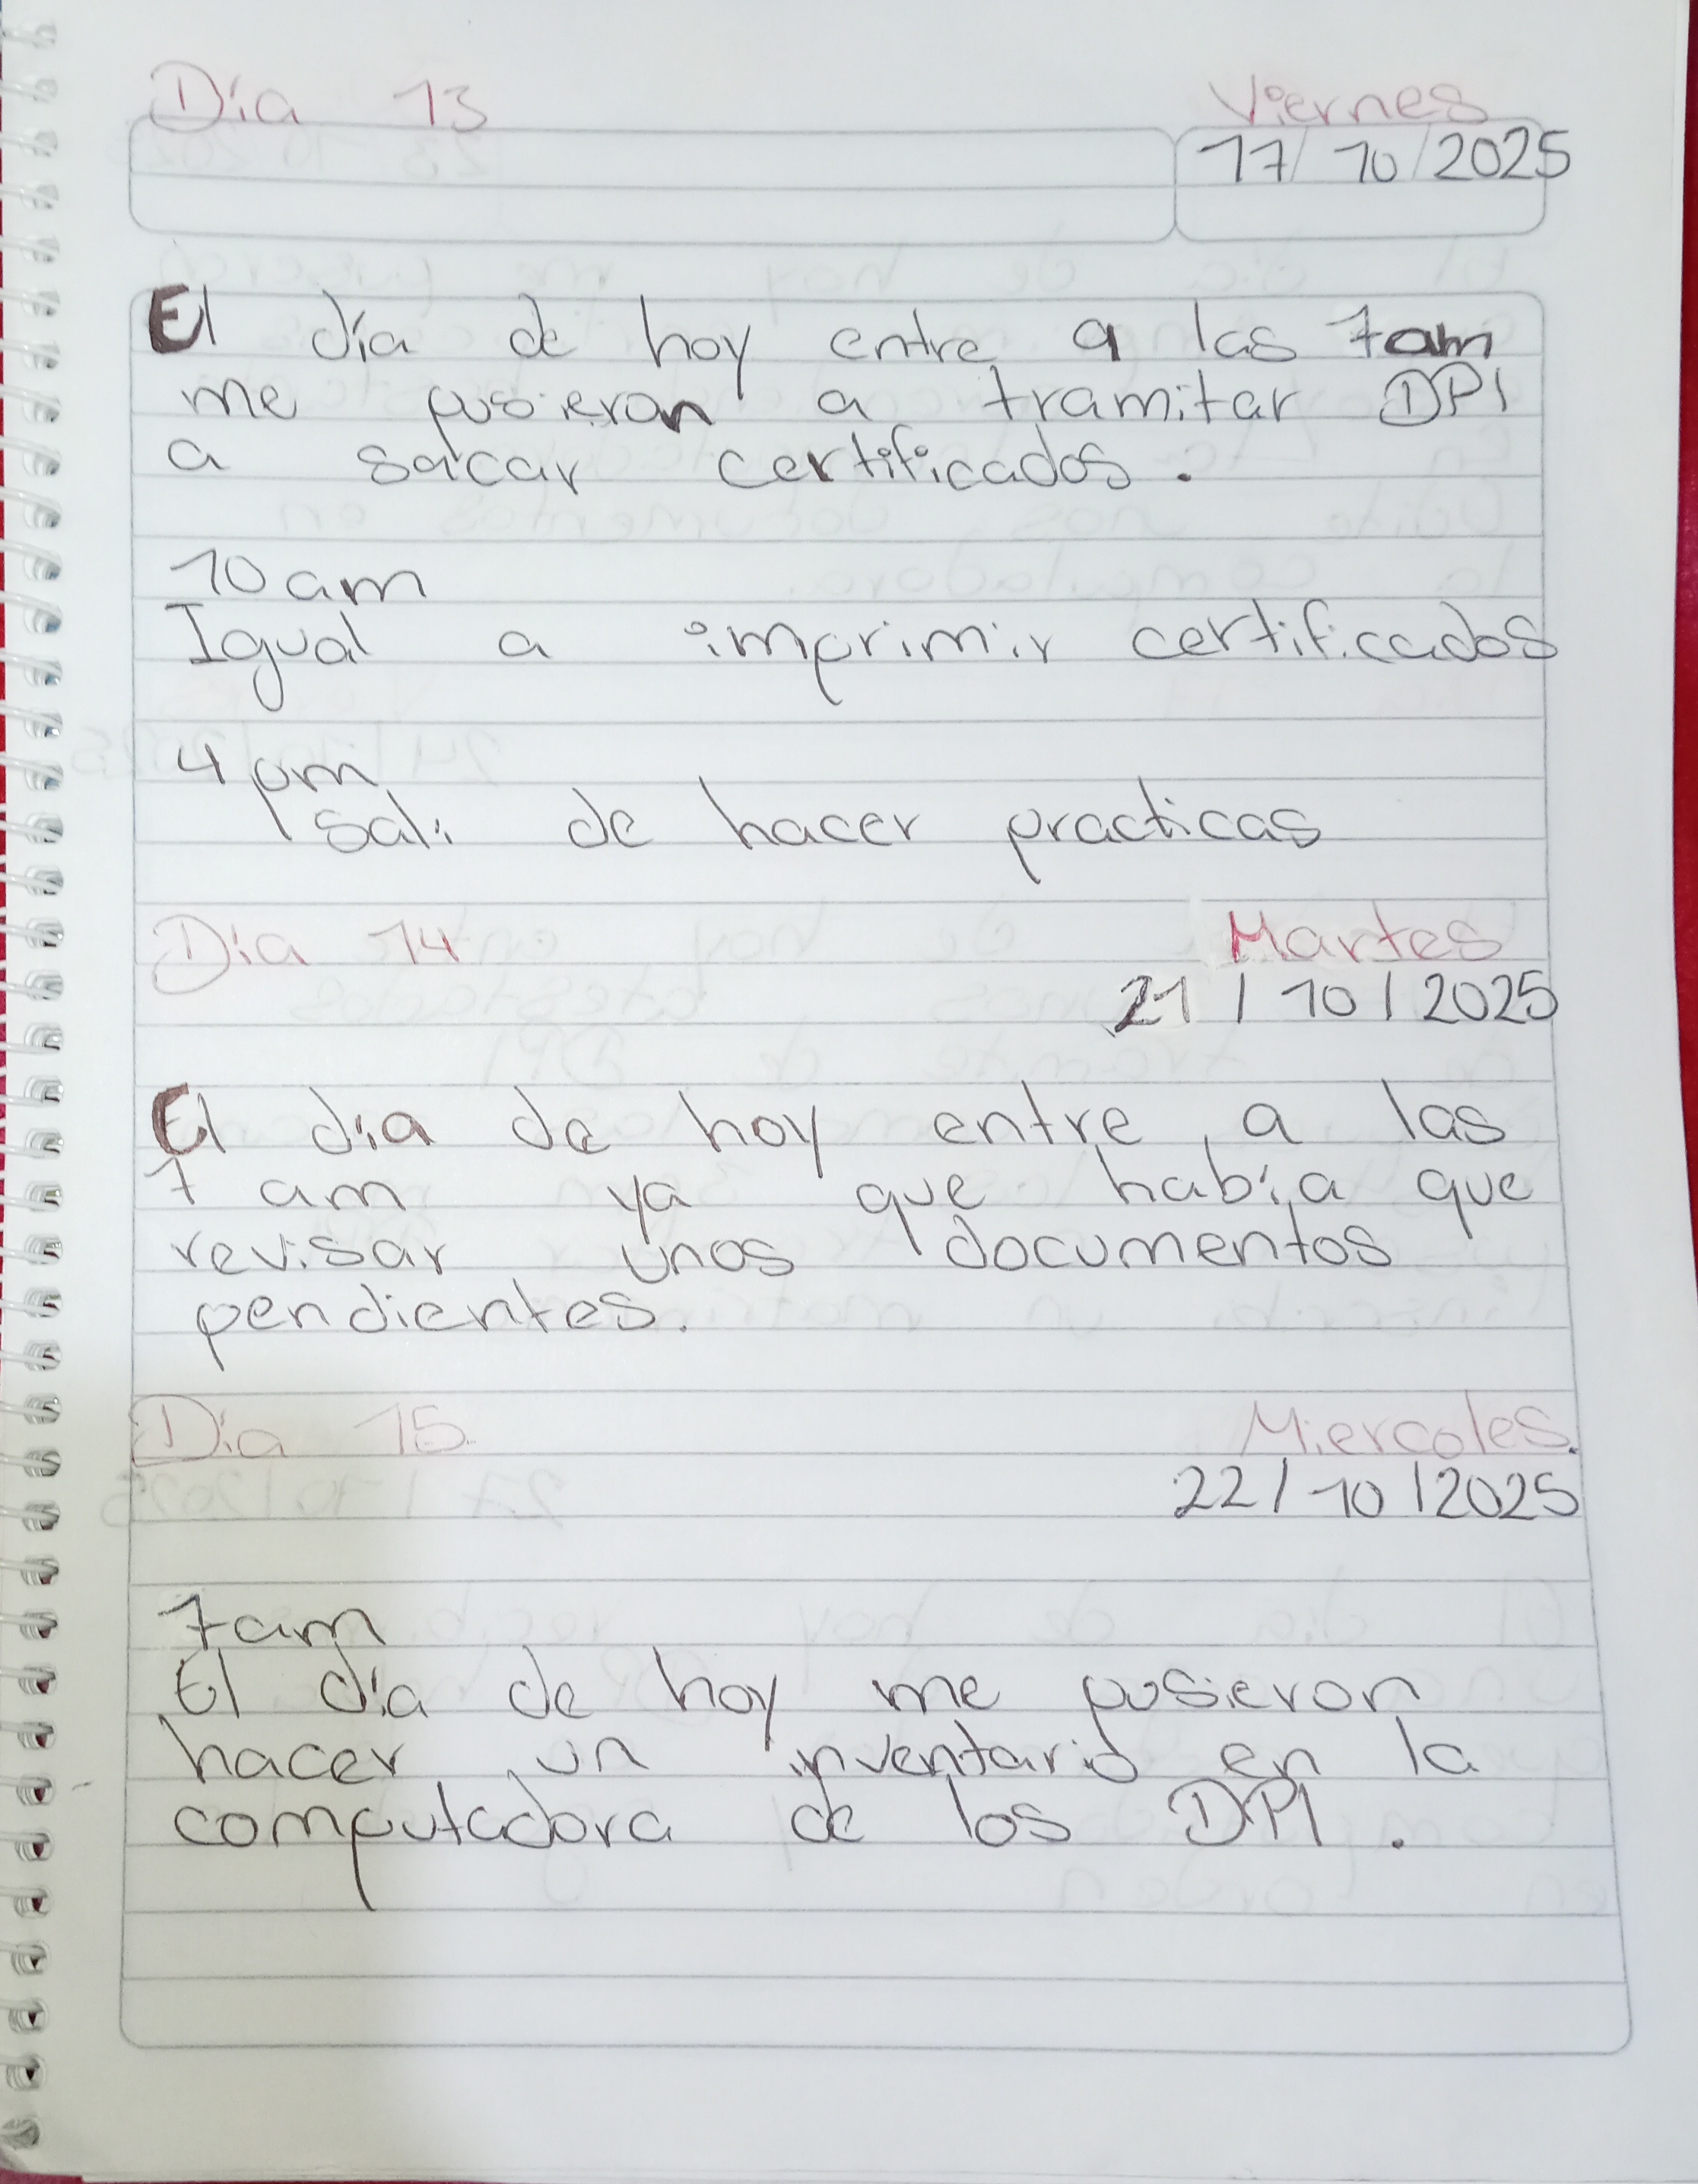 Día 13 Viernes
17/10/2025
El día de hoy entre a las 7am
me pusieron a tramitar DPI
a sacar certificados.
10 am
Igual a imprimir certificados
4 pm
sali de hacer practicas
Dia 14 Martes
21/10/2025
El dia de hoy entre a las
7 am ya que había que
revisar unos documentos
pendientes.
Dia 15 Miercoles.
22/10/2025
7am
El día de hoy me pusieron
hacer un inventario en la
computadora de los DPI.